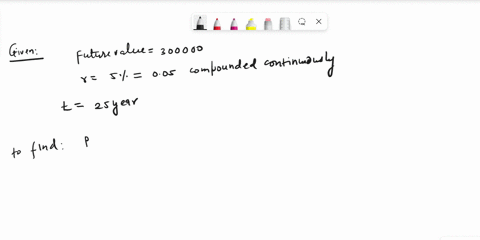 Given: Future value = 300000
r = 5% = 0.05 compounded continuously
t = 25 year
to find: P